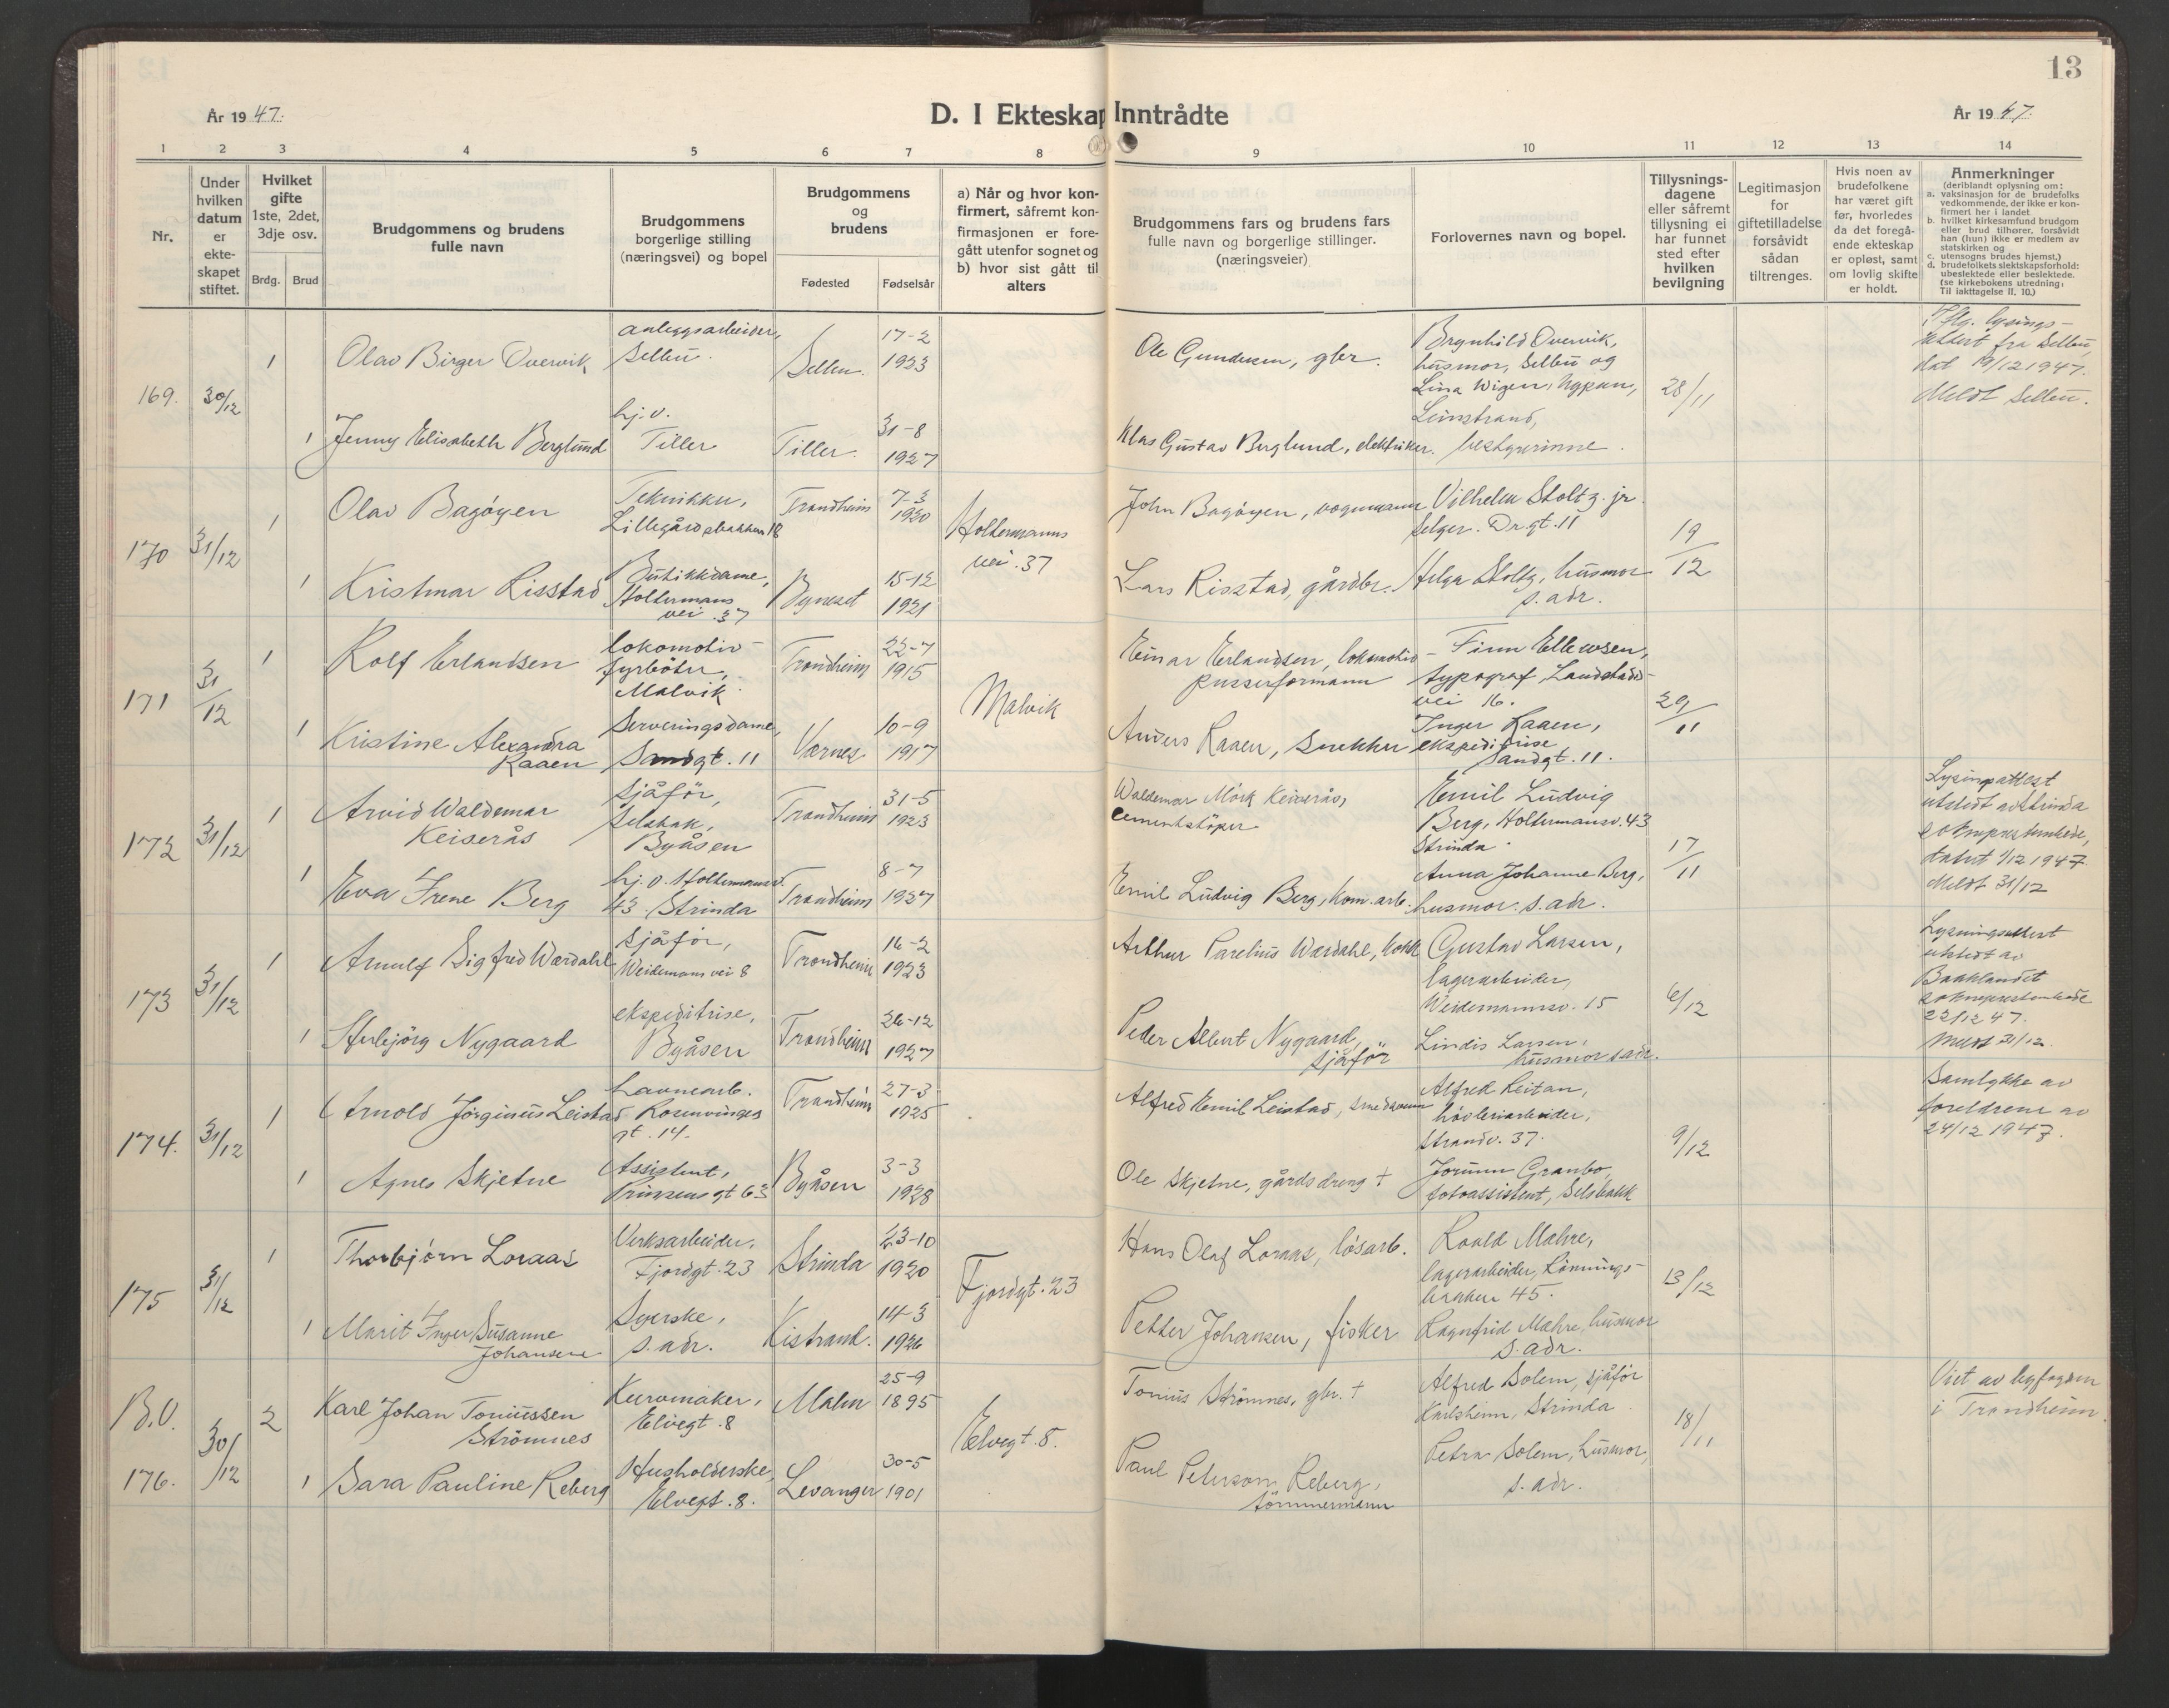 13
År 1947.
D. I Ekteskap Inntrådte
År 1947.
1 2 3 4 5 6 7 8 9 10 11 12 13 14
Nr.
Under
hvilken
datum
er
ekte-
skapet
stiftet.
Hvilket
gifte
1ste, 2det,
3dje osv.
Brdg. Brud
Brudgommens og brudens
fulle navn
Brudgommens
borgerlige stilling
(næringsvei) og bopel
Brudgommens
og
brudens
Fødested Fødselsår
a) Når og hvor kon-
firmert, såfremt kon-
firmasjonen er fore-
gått utenfor sognet og
b) hvor sist gått til
alters
Brudgommens fars og brudens fars
fulle navn og borgerlige stillinger.
(næringsveier)
Forlovernes navn og bopel.
Tillysnings-
dagene
eller såfremt
tillysning ei
har funnet
sted efter
hvilken
bevilgning
Legitimasjon
for
giftetilladelse
forsåvidt
sådan
tiltrenges.
Hvis noen av
brudefolkene
har været gift
før, hvorledes
da det foregå-
ende ekteskap
er opløst, samt
om lovlig skifte
er holdt.
Anmerkninger
(deriblandt oplysning om:
a. vaksinasjon for de brudefolks
vedkommende, der ikke er kon-
firmert her i landet
b. hvilket kirkesamfund brudgom
eller brud tilhører, forsåvidt
han (hun) ikke er medlem av
statskirken og
c. utensogns brudes hjemst.)
d. brudefolkets slektskapsforhold:
ubeslektede eller beslektede.
(se kirkebokens utredning:
Til iakttagelse II. 10.)
169. 30/12
1
Olav Birger Overvik
anleggsarbeider,
Selbu.
Selbu.
17-2
1923
Ole Gundersen, gbr.
Brynhild Overvik,
husmor, Selbu og
Lina Wigen, Nypan,
Leinstrand,
bestyrerinne.
28/11
Iflg. lysings-
attest fra Selbu,
dat 19/12 1947.
Meldt Selbu.
1
Jenny Elisabeth Berglund
hj.v.
Tiller
Tiller.
31-8
1927
Klas Gustav Berglund, elektriker.
170 31/12
1
Olav Bagøyen
Tekniker,
Lillegårdsbakken 18
Trondheim
7-3
1920
Holtermanns
vei. 37
John Bagøyen, vognmann
Vilhelm Stoltz. jr.
selger. Dr.gt. 11
19/12
1
Kristmar Risstad
Butikkdame,
Holtermans
vei 37
Byneset
15-12
1921
Lars Risstad, gårdbr.
Helga Stoltz, husmor
s. adr.
171 31/12
1
Rolf Erlandsen
lokomotiv-
fyrbøter,
Malvik.
Trondheim
22-7
1915
Malvik
Einar Erlandsen, lokomotiv-
pusserformann
Finn Ellewsen,
typograf, Landstads-
vei 16.
29/11
1
Kristine Alexandra
Raaen
Serveringsdame,
Sandgt. 11
Værnes
10-9
1917
Anders Raaen, snekker
Inger Raaen,
ekspeditrise
Sandgt. 11.
172 31/12
1
Arvid Waldemar
Keiserås
sjåfør,
Selsbak,
Byåsen
Trondheim
31-5
1923
Waldemar Mörk Keiserås,
cementstöper
Emil Ludvig
Berg, Holtermansv. 43
Strinda.
17/11
Lysingsattest
utstedt av Strinda
sokneprestembede,
datert 1/12 1947.
Meldt 31/12
1
Eva Irene Berg
hj.v. Holtermansv.
43. Strinda
Trondheim
8-7
1927
Emil Ludvig Berg, kom.arb.
Anna Johanne Berg,
husmor. s. adr.
173 31/12
1
Arnulf Sigfred Wærdahl
sjåför,
Weidemans vei 8
Trondheim
16-2
1923
Arthur Parelius Wærdahl, kokk
Gustav Larsen,
lagerarbeider,
Weidemannsv. 15
6/12
Lysningsattest
utstedt av
Bakklandet
sokneprestembede
22/12 47.
Meldt 31/12.
1
Herbjörg Nygaard
ekspeditrise,
Byåsen
Trondheim
26-12
1927
Peder Albert Nygaard,
sjåför
Lindis Larsen,
husmor s adr.
174. 31/12
1
Arnold Jörginus Leistad
Havnearb.
Rosenvinges
gt. 14.
Trondheim
27-3
1925
Alfred Emil Leistad, smedmann
Alfred Reitan,
høvleriarbeider,
Strandv. 37.
9/12
Samtykke av
foreldrene av
24/12 1947.
1
Agnes Skjetne
Assistent,
Prinsens gt 63
Byåsen
3-3
1928
Ole Skjetne, gårdsdreng †
Jorunn Granbo,
fotoassistent, Selsbakk
175 31/12
1
Thorbjörn Loraas
Verksarbeider,
Fjordgt. 23
Strinda
23-10
1920
Fjordgt. 23
Hans Olaf Loraas, løsarb.
Roald Mahre,
lagerarbeider, Rönnings-
bakken 45.
13/12
1
Marit Inger Susanne
Johansen
Syerske,
s. adr.
Kistrand.
14-3
1926
Petter Johansen, fisker
Ragnfrid Mahre, husmor
s. adr.
B.V.
176. 30/12
2
Karl Johan Toniussen
Strömnes
Kurvmaker,
Elvegt. 8
Malm
25-9
1895
Elvegt. 8.
Tonius Strömnes, gbr. †
Alfred Solem, sjåför
Karlsheim, Strinda.
18/11
Viet av byfogden
i Trondheim.
1
Sara Pauline Reberg
Husholderske,
Elvegt. 8.
Levanger
30-5
1901
Paul Peterson Reberg,
tömmermann
Petra Solem, husmor,
s. adr.